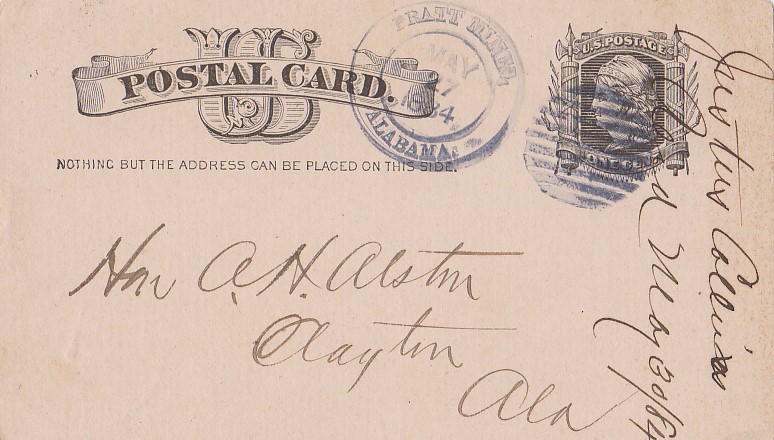 US
POSTAL CARD.
NOTHING BUT THE ADDRESS CAN BE PLACED ON THIS SIDE.
PRATT MINES,
MAY
7
1884
ALABAMA.
U.S. POSTAGE
ONE CENT
Hon A. H. Alston
Clayton
Ala
Justus Collins
May 30/84